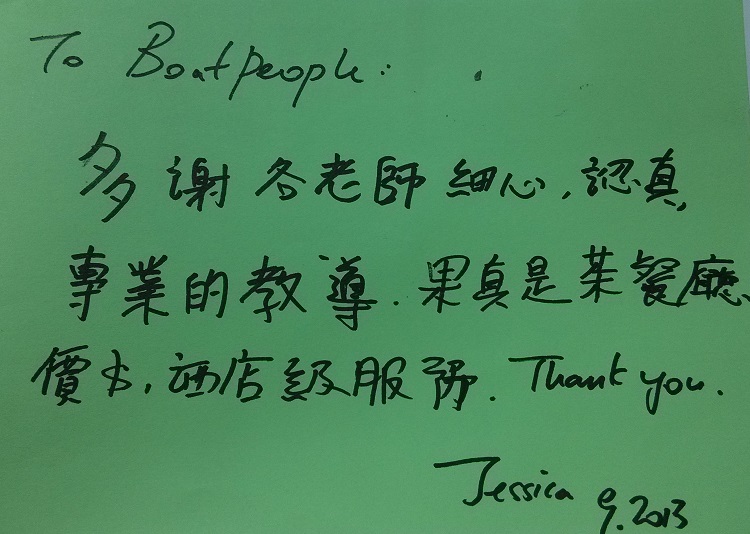 To Boatpeople:
多謝各老師細心,認真,
專業的教導.果真是茶餐廳
價水,酒店級服務. Thank you.
Jessica 9.2013